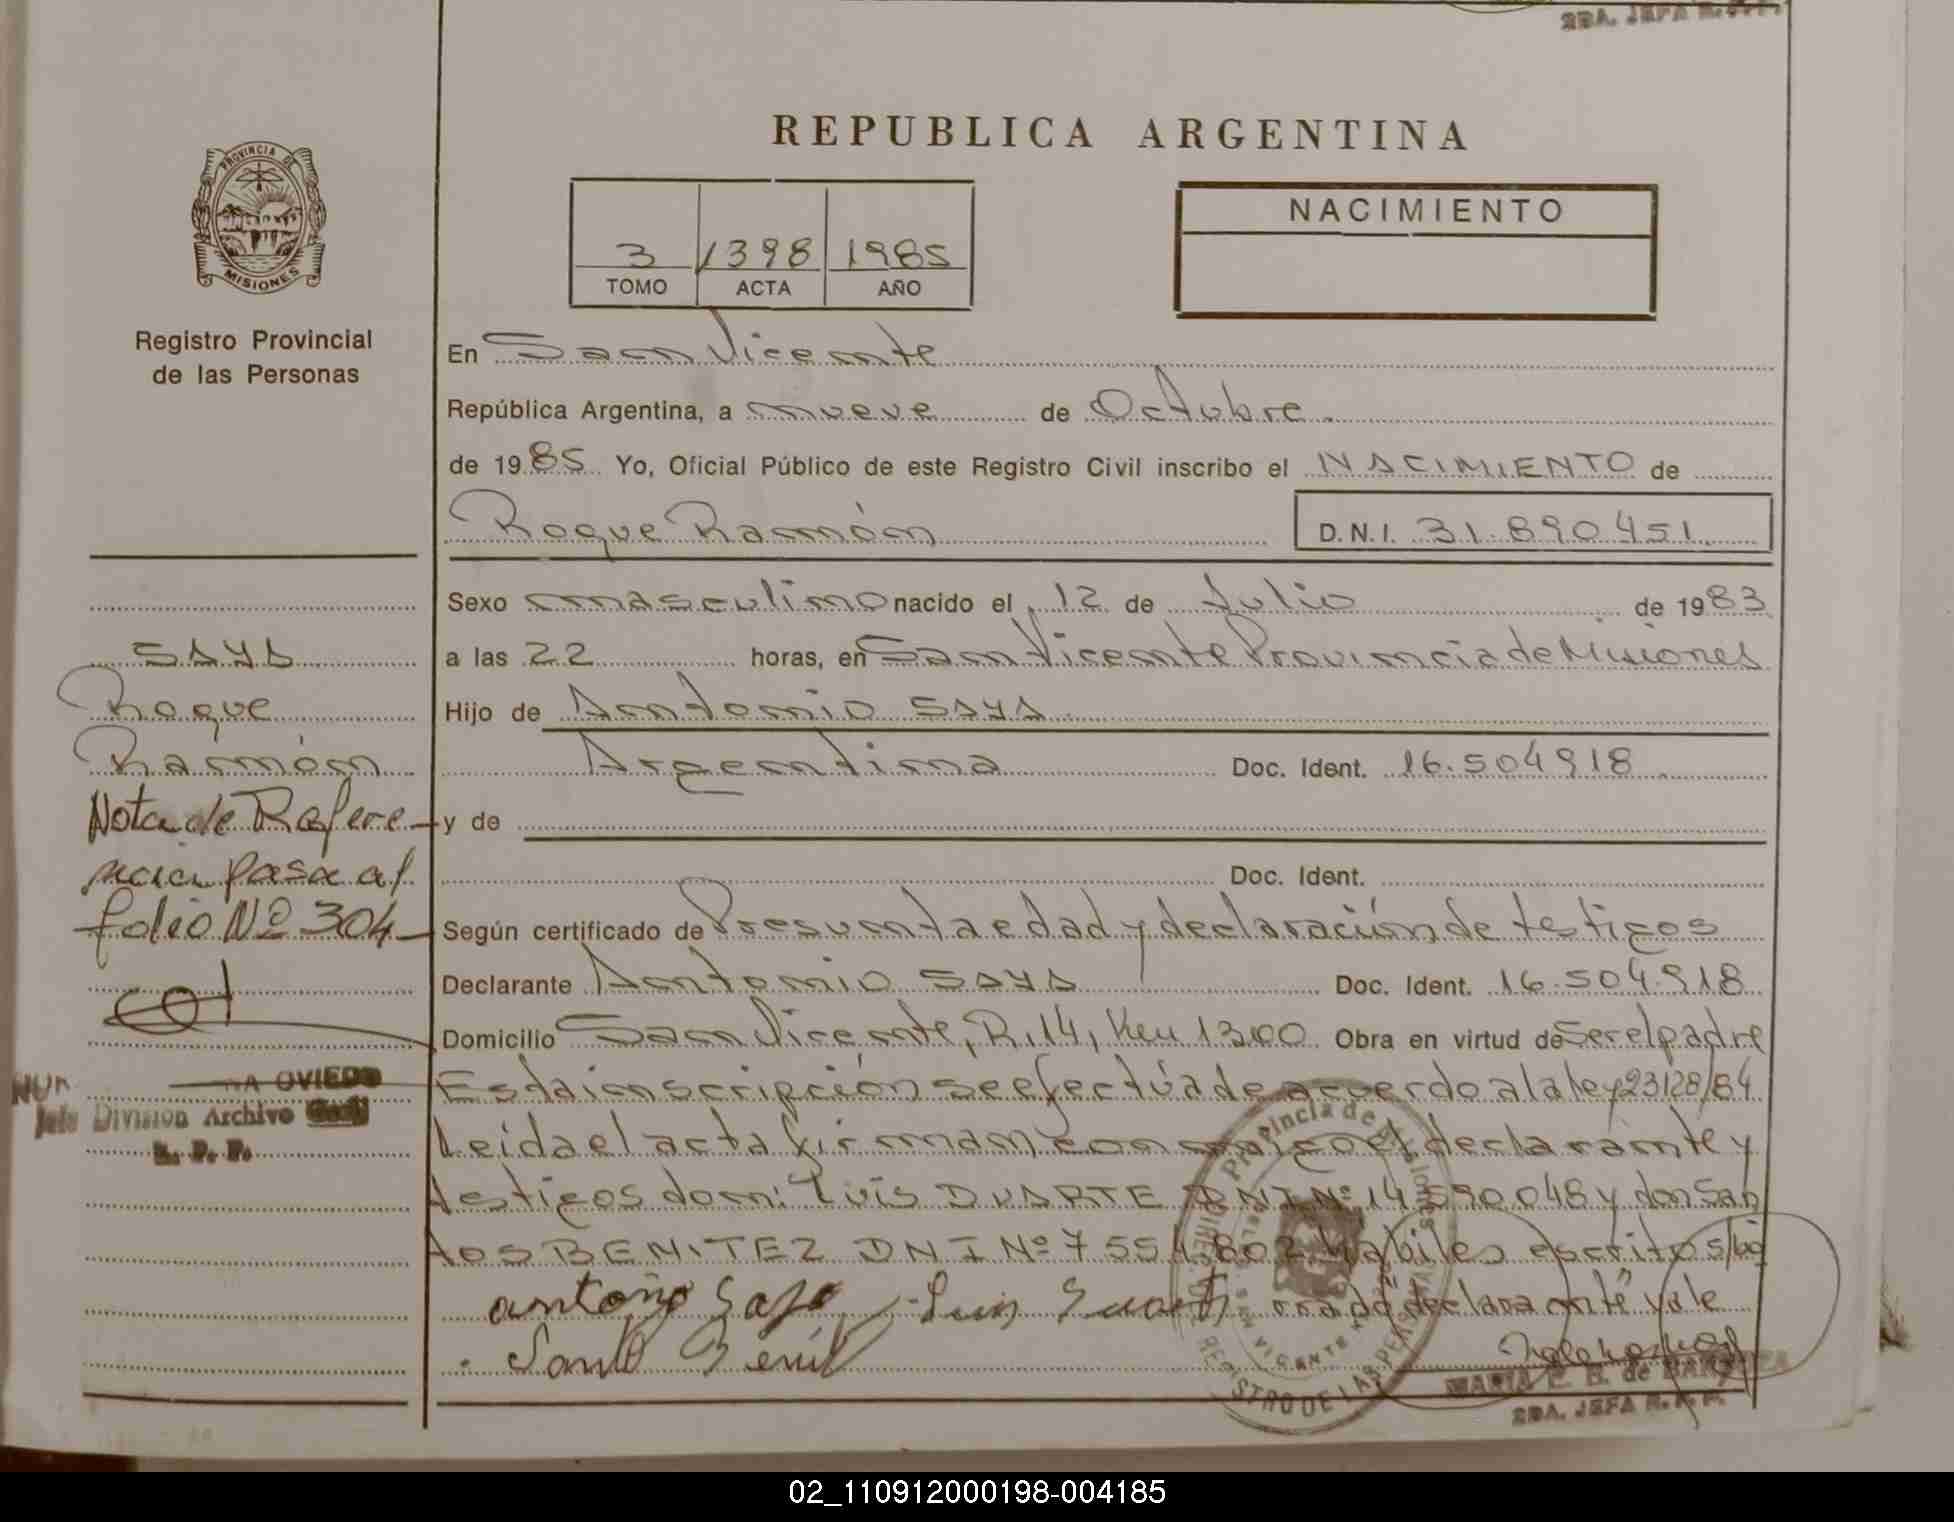 2DA. JEFA R.P.P.
REPUBLICA ARGENTINA
PROVINCIA DE
MISIONES
Registro Provincial
de las Personas
3 1398 1985
TOMO ACTA AÑO
NACIMIENTO
En San Vicente
República Argentina, a nueve de Octubre.
de 1985 Yo, Oficial Público de este Registro Civil inscribo el NACIMIENTO de
Roque Ramón D.N.I. 31.890.451
Sexo masculino nacido el 12 de Julio de 1983
a las 22 horas, en San Vicente Provincia de Misiones
Hijo de Antonio SAYA
Argentina Doc. Ident. 16.504918
y de
Doc. Ident.
Según certificado de Presunta edad y declaración de testigos
Declarante Antonio SAYA Doc. Ident. 16.504.918
Domicilio San Vicente, R.14, Km 1300 Obra en virtud de Ser el padre
Esta inscripción se efectúa de acuerdo a la ley 23128/84
Leída el acta firman conmigo el declarante y
testigos don: Luis DUARTE DNI Nº 14.590.048 y don San
tos BENITEZ DNI Nº 7.554.802 habiles escrito s/bo
rrado "declarante" vale
MARIA E. B. de
2DA. JEFA R.P.P.
SAYA
Roque
Ramón
Nota de Refere-
ncia pasa al
folio Nº 304-
OVIEDO
Jefe Division Archivo
R. P. P.
Provincia de Misiones
REGISTRO DE LAS PERSONAS
SAN VICENTE
02_110912000198-004185